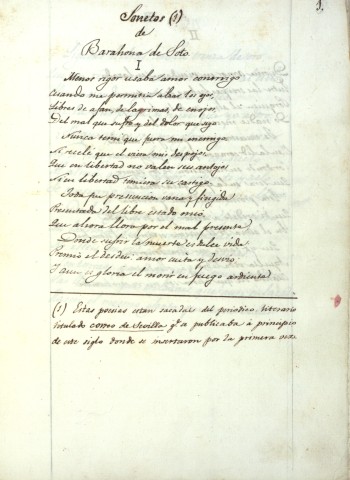 1.
Sonetos (1)
de
Barahona de Soto.
I
Menos rigor usaba amor conmigo
Cuando me permitia alzar los ojos,
Libres de afan, de lagrimas, de enojos,
Del mal que sufro y del dolor que sigo
Nunca temi que fuera mi enemigo
Ni recelé que el viera mis despojos;
Que en libertad no valen sus antojos
Ni en libertad temiera su castigo.
Toda fue presuncion vana y fingida
Presentada del libre estado mio,
Que ahora lloro por el mal presente
Donde sufrir la muerte es dulce vida
Premio el desden amor cuita y desvio
Y aun es gloria el morir en fuego ardiente
(1) Estas poesias estan sacadas del periodico literario
titulado correo de Sevilla qe. se publicaba á principio
de este siglo donde se insertaron por la primera vez.